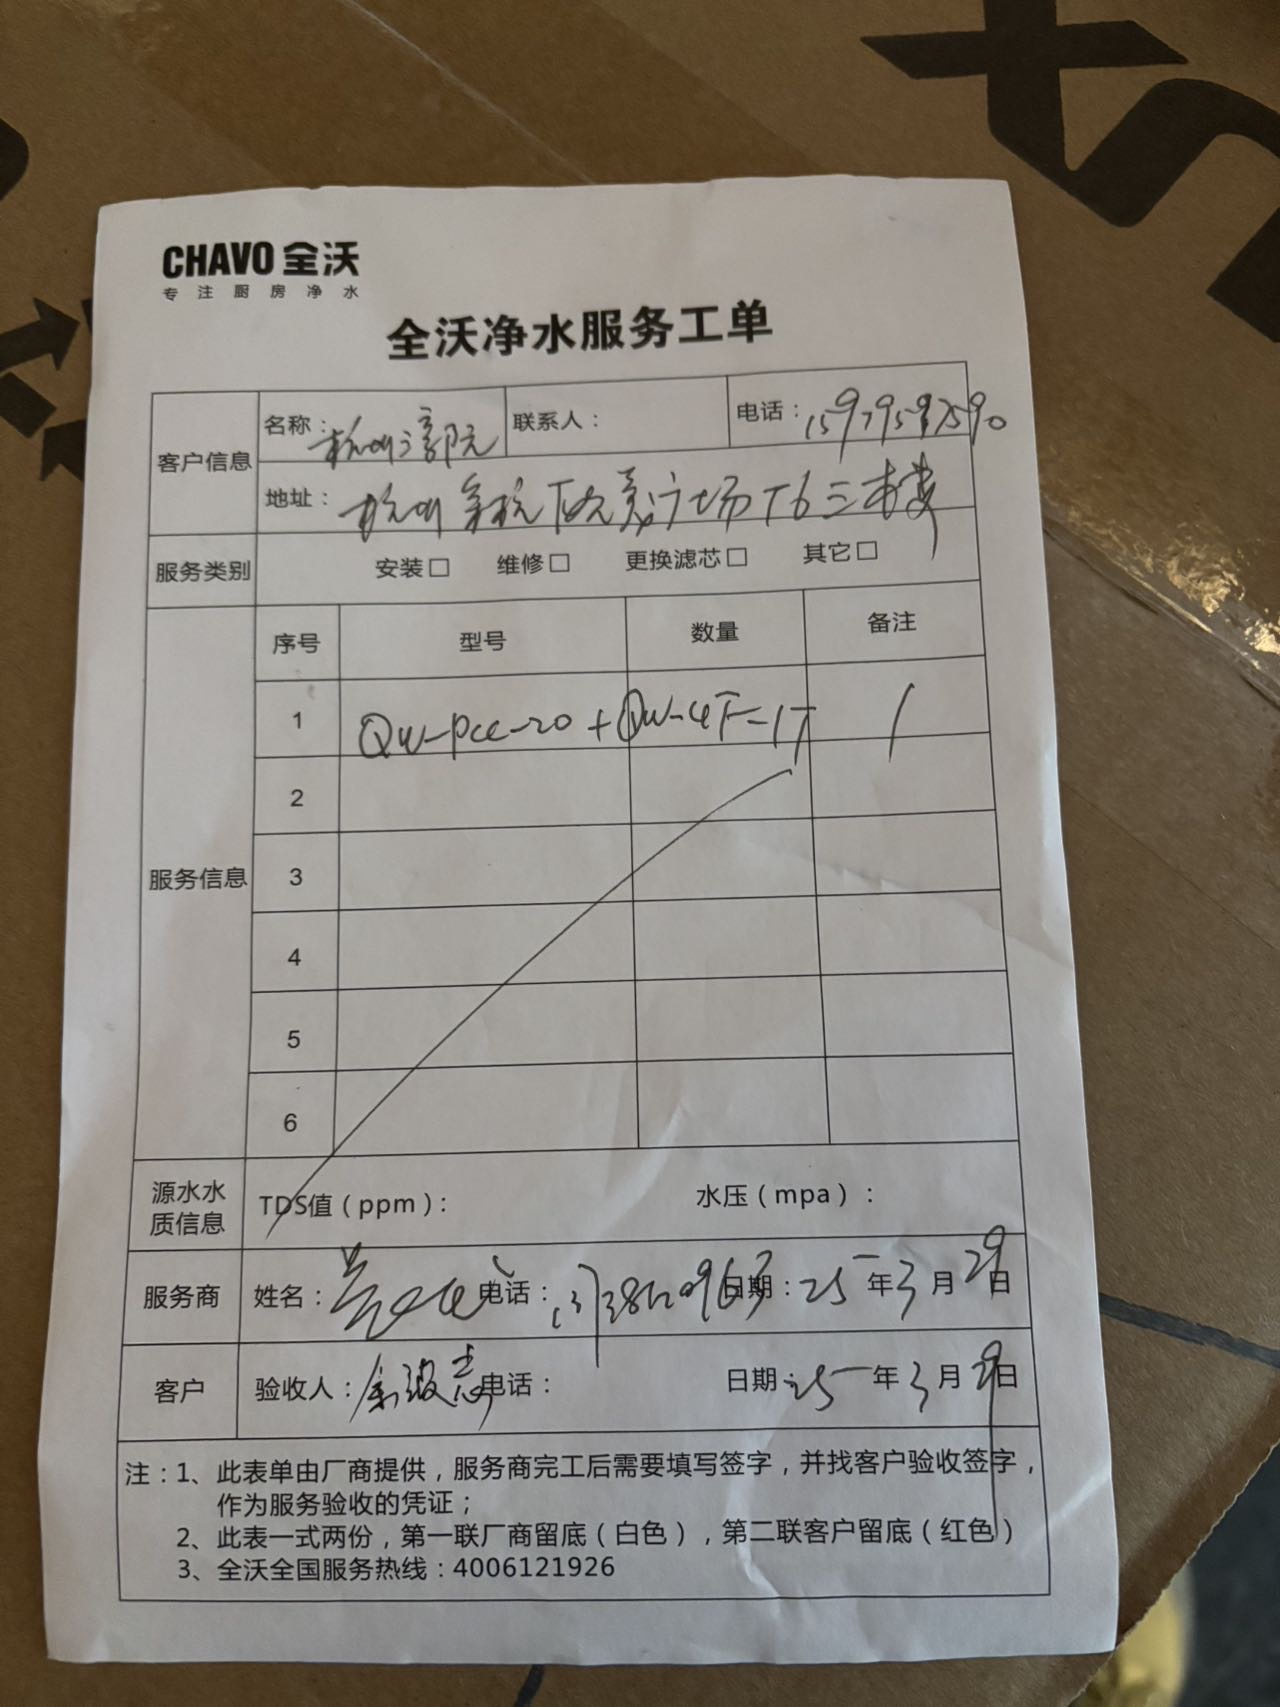 CHAVO 全沃
专注厨房净水
全沃净水服务工单
客户信息
名称：杭州 联系人： 电话：15979597590
地址：杭州余杭 广场T6三楼
服务类别 安装□ 维修□ 更换滤芯□ 其它□
服务信息
序号 型号 数量 备注
1 QW-PCC-20+QW-4F-1T /
2
3
4
5
6
源水水质信息 TDS值（ppm）： 水压（mpa）：
服务商 姓名： 电话： 日期：25年3月29日
客户 验收人： 电话： 日期：25年3月29日
注：1、此表单由厂商提供，服务商完工后需要填写签字，并找客户验收签字，
作为服务验收的凭证；
2、此表一式两份，第一联厂商留底（白色），第二联客户留底（红色）
3、全沃全国服务热线：4006121926